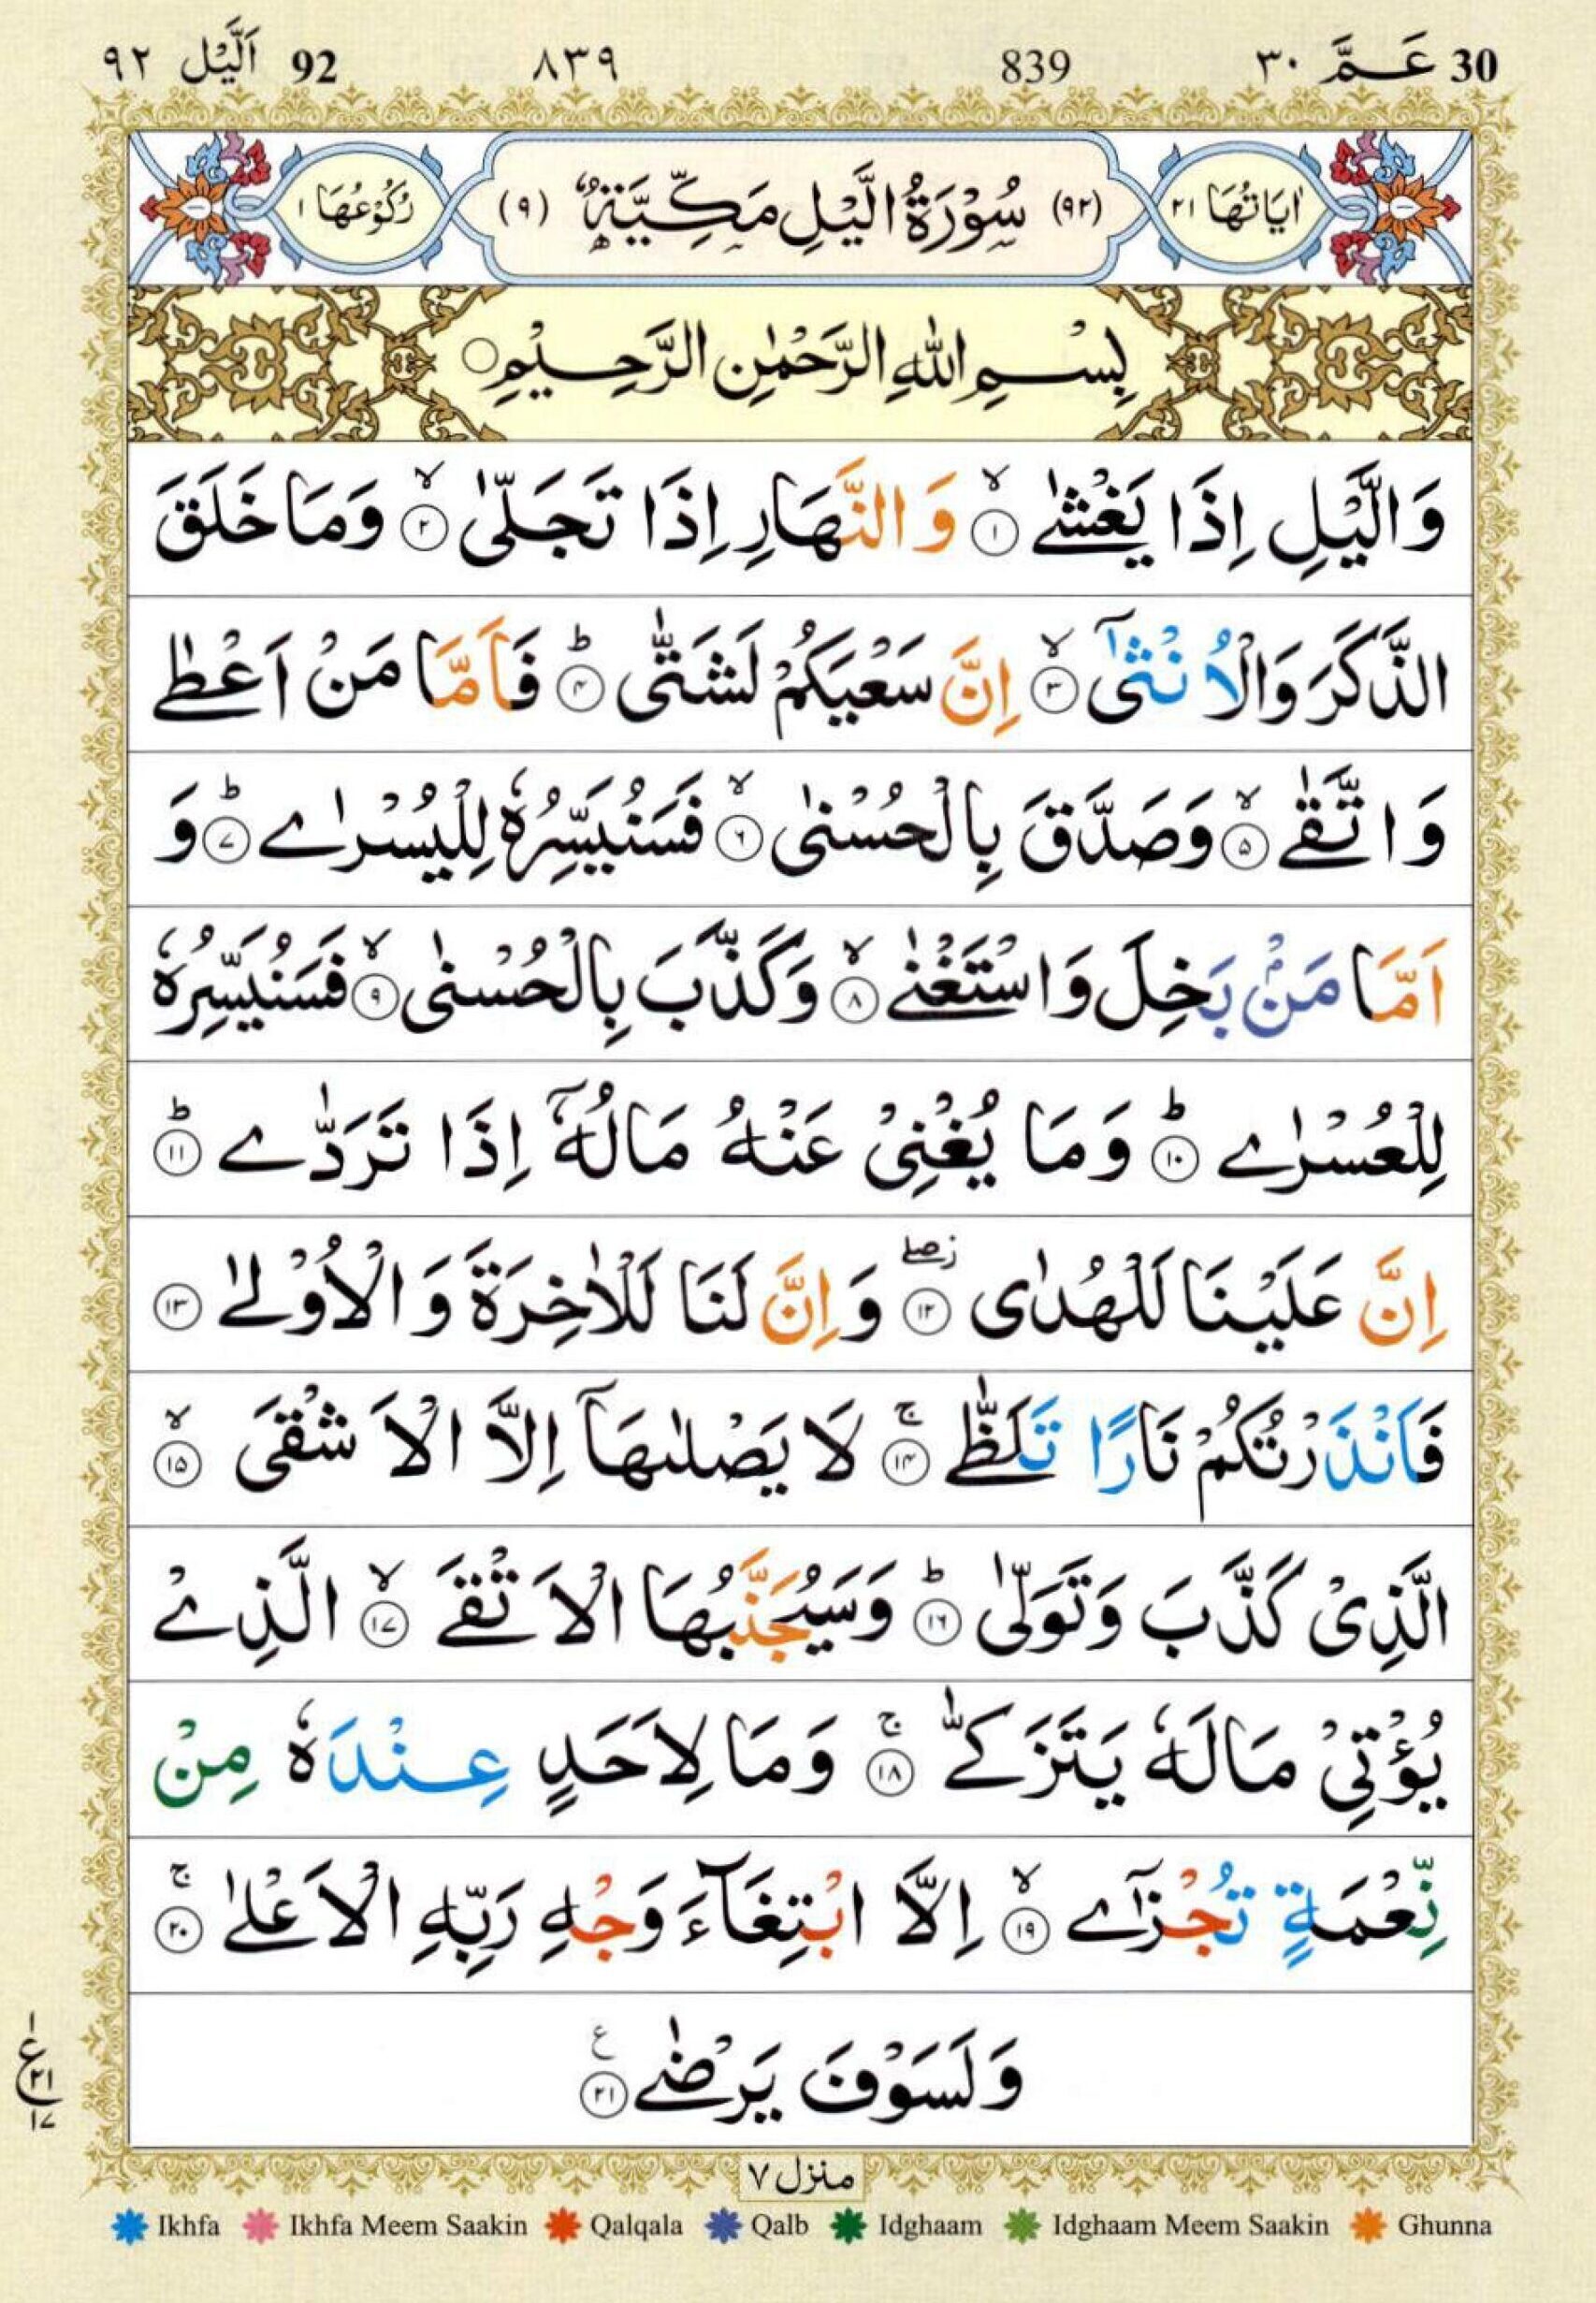 30 عَمَّ ٣٠ 839 ٨٣٩ 92 اَلَّيْل ٩٢
اٰيَاتُهَا ٢١ (٩٢) سُوْرَةُ الَّيْلِ مَكِّيَّةٌ (٩) رُكُوْعُهَا ١
بِسْمِ اللّٰهِ الرَّحْمٰنِ الرَّحِيْمِ○
وَالَّيْلِ اِذَا يَغْشٰے ۙ﴿١﴾ وَ النَّهَارِ اِذَا تَجَلّٰى ۙ﴿٢﴾ وَمَا خَلَقَ
الذَّكَرَ وَالْاُنْثٰٓى ۙ﴿٣﴾ اِنَّ سَعْيَكُمْ لَشَتّٰى ؕ﴿٤﴾ فَاَمَّا مَنْ اَعْطٰے
وَ اتَّقٰے ۙ﴿٥﴾ وَصَدَّقَ بِالْحُسْنٰى ۙ﴿٦﴾ فَسَنُيَسِّرُهٗ لِلْيُسْرٰے ؕ﴿٧﴾ وَ
اَمَّا مَنْۢ بَخِلَ وَ اسْتَغْنٰے ۙ﴿٨﴾ وَكَذَّبَ بِالْحُسْنٰى ۙ﴿٩﴾ فَسَنُيَسِّرُهٗ
لِلْعُسْرٰے ؕ﴿١٠﴾ وَمَا يُغْنِىْ عَنْهُ مَالُهٗٓ اِذَا تَرَدّٰے ؕ﴿١١﴾
اِنَّ عَلَيْنَا لَلْهُدٰى ۖ﴿١٢﴾ وَ اِنَّ لَنَا لَلْاٰخِرَةَ وَ الْاُوْلٰے ﴿١٣﴾
فَاَنْذَرْتُكُمْ نَارًا تَلَظّٰے ۚ﴿١٤﴾ لَا يَصْلٰىهَآ اِلَّا الْاَشْقَى ۙ﴿١٥﴾
الَّذِىْ كَذَّبَ وَتَوَلّٰى ؕ﴿١٦﴾ وَسَيُجَنَّبُهَا الْاَتْقَے ۙ﴿١٧﴾ الَّذِےْ
يُؤْتِىْ مَالَهٗ يَتَزَكّٰے ۚ﴿١٨﴾ وَمَا لِاَحَدٍ عِنْدَهٗ مِنْ
نِّعْمَةٍ تُجْزٰٓے ۙ﴿١٩﴾ اِلَّا ابْتِغَآءَ وَجْهِ رَبِّهِ الْاَعْلٰے ۚ﴿٢٠﴾
وَلَسَوْفَ يَرْضٰے ﴿٢١﴾ ع
١ ع ٢١ ١٧
منزل ٧
Ikhfa Ikhfa Meem Saakin Qalqala Qalb Idghaam Idghaam Meem Saakin Ghunna